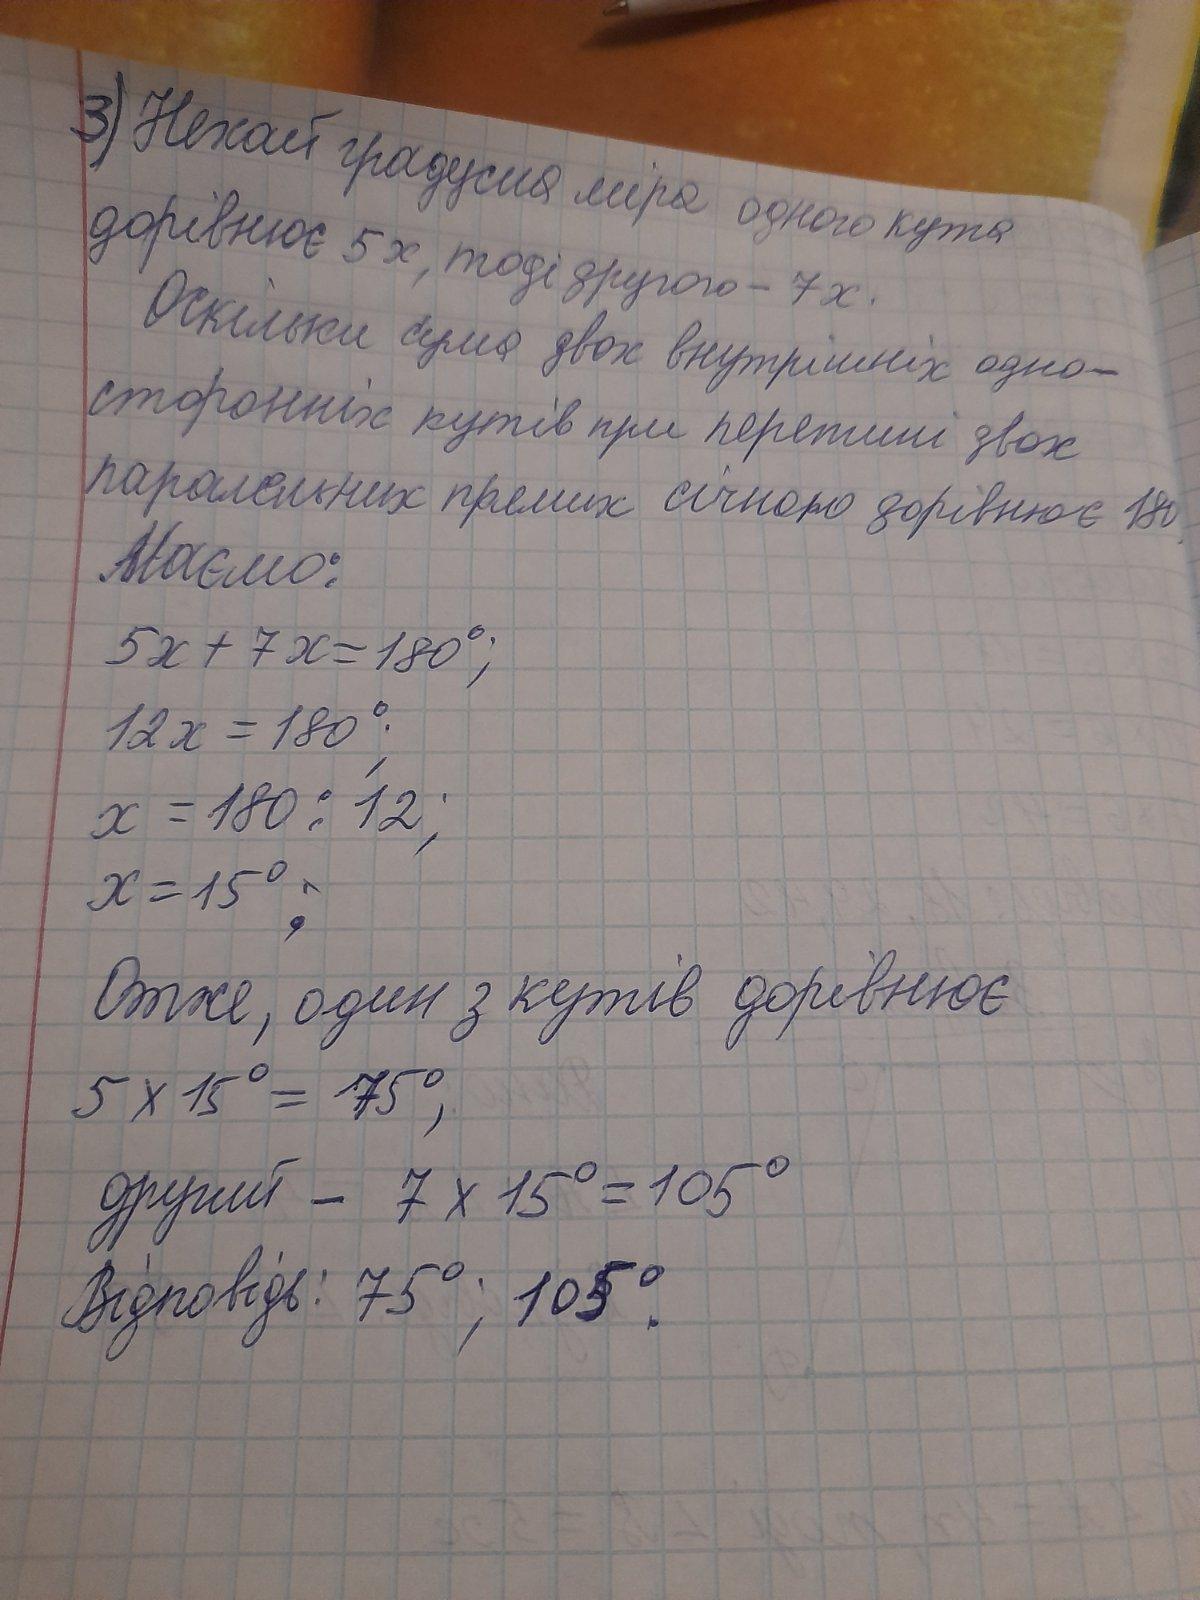 3) Нехай градусна міра одного кута
дорівнює 5x, тоді другого – 7x.
Оскільки сума двох внутрішніх одно-
сторонніх кутів при перетині двох
паралельних прямих січною дорівнює 180.
Маємо:
5x + 7x = 180°;
12x = 180°;
x = 180 : 12;
x = 15°;
Отже, один з кутів дорівнює
5 x 15° = 75°,
другий – 7 x 15° = 105°
Відповідь: 75°; 105°.